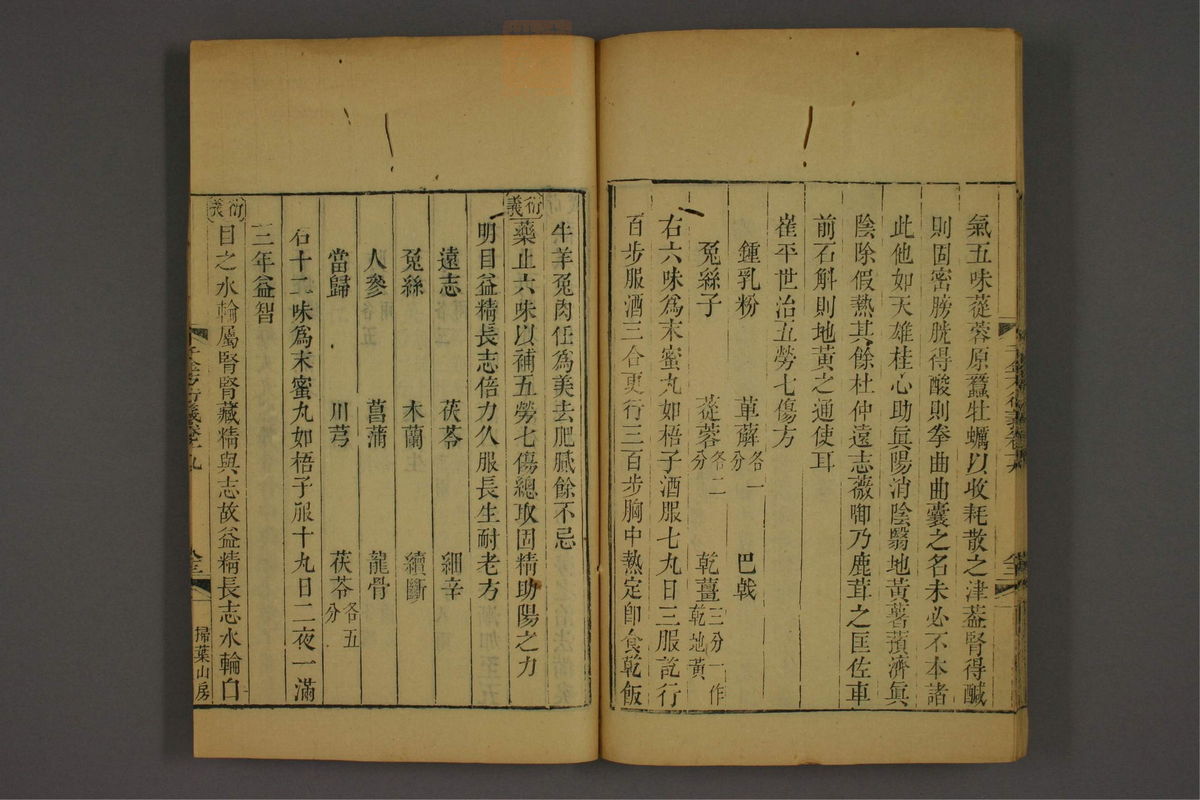 氣五味蓯蓉原蠶牡蠣以收耗散之津葢腎得鹹
則固密膀胱得酸則拳曲曲囊之名未必不本諸
此他如天雄桂心助眞陽消陰翳地黃薯蕷濟眞
陰除假熱其餘杜仲遠志薇啣乃鹿茸之匡佐車
前石斛則地黃之通使耳
崔平世治五勞七傷方
鍾乳粉 萆薢各一分 巴戟
兔絲子 蓯蓉各二分 乾薑三分一作乾地黃
右六味爲末蜜丸如梧子酒服七丸日三服訖行
百步服酒三合更行三百步胸中熱定卽食乾飯
牛羊兔肉任爲美去肥膩餘不忌
衍義 藥止六味以補五勞七傷總取固精助陽之力
明目益精長志倍力久服長生耐老方
遠志 茯苓 細辛
兔絲 木蘭 續斷
人參 菖蒲 龍骨
當歸 川芎 茯苓各五分
右十二味爲末蜜丸如梧子服十丸日二夜一滿
三年益智
衍義 目之水輪屬腎腎藏精與志故益精長志水輪自
掃葉山房